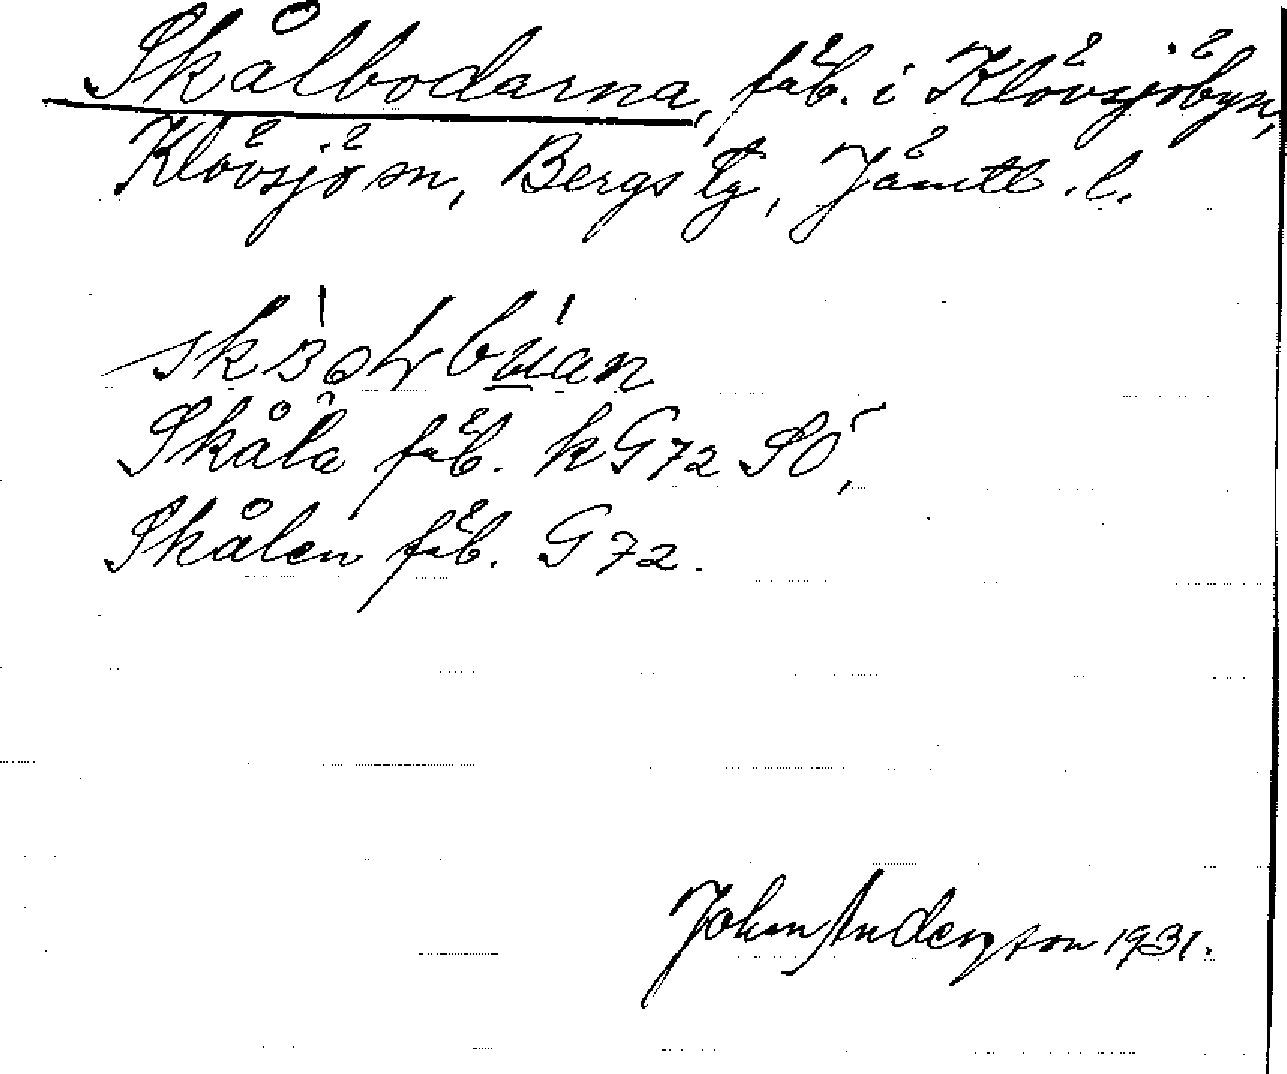 Skålbodarna, fäb. i Klövsjöbyn,
Klövsjö sn, Bergs tg, Jämtl. l.
Skåla fäb. kG72 SÖ,
Skålen fäb. G72.
John Anderzson 1931.